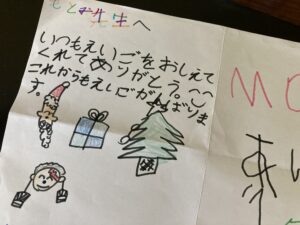 もとお先生へ
いつもえいごをおしえて
くれてありがとう。
これからもえいごがんばりま
す。
MO
あり